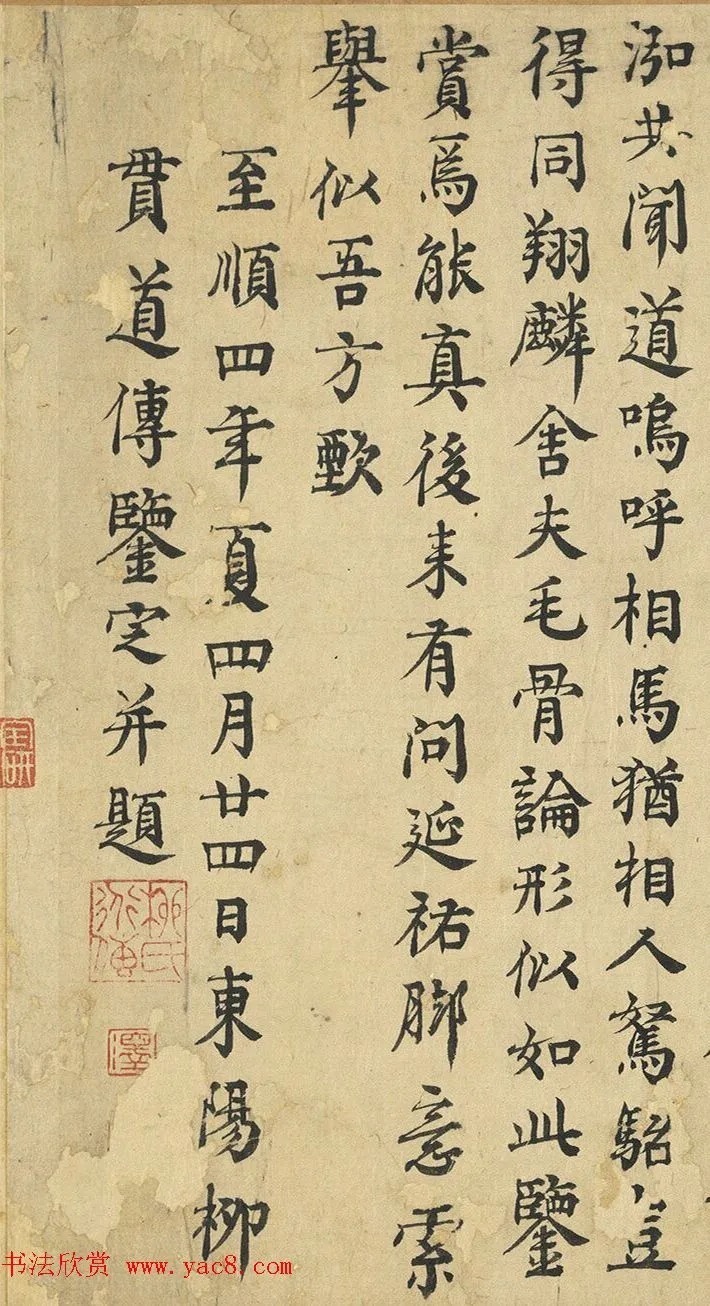 泓共聞道嗚呼相馬猶相人駑駘豈
得同翔麟舍夫毛骨論形似如此鑒
賞為能真後来有問延祐脚意索
舉似吾方甄
至順四年夏四月廿四日東陽柳
貫道傳鑒定并題
柳氏道傳
澤
书法欣赏 www.yac8.com